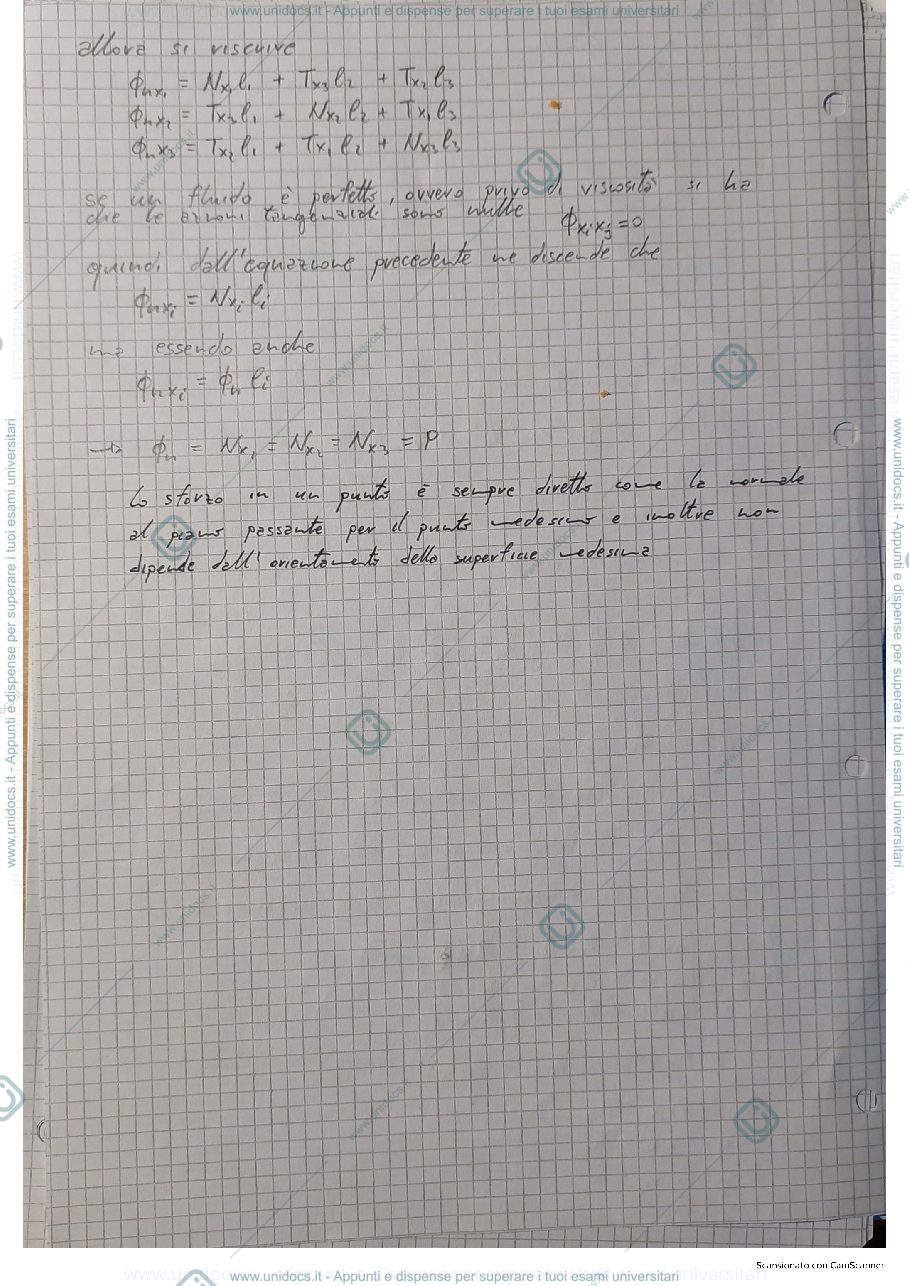 www.unidocs.it - Appunti e dispense per superare i tuoi esami universitari
allora si riscrive
ϕnx₁ = Nx₁l₁ + Tx₃l₂ + Tx₂l₃
ϕnx₂ = Tx₃l₁ + Nx₂l₂ + Tx₁l₃
ϕnx₃ = Tx₂l₁ + Tx₁l₂ + Nx₃l₃
se un fluido è perfetto, ovvero privo di viscosità si ha
che le azioni tangenziali sono nulle ϕxᵢxⱼ = 0
quindi dall'equazione precedente ne discende che
ϕnxᵢ = Nxᵢ lᵢ
ma essendo anche
ϕnxᵢ = ϕn lᵢ
→ ϕn = Nx₁ = Nx₂ = Nx₃ = P
Lo sforzo in un punto è sempre diretto come la normale
al piano passante per il punto medesimo e inoltre non
dipende dall'orientamento della superficie medesima
www.unidocs.it - Appunti e dispense per superare i tuoi esami universitari
www.unidocs.it - Appunti e dispense per superare i tuoi esami universitari
Scansionato con CamScanner
www.unidocs.it - Appunti e dispense per superare i tuoi esami universitari